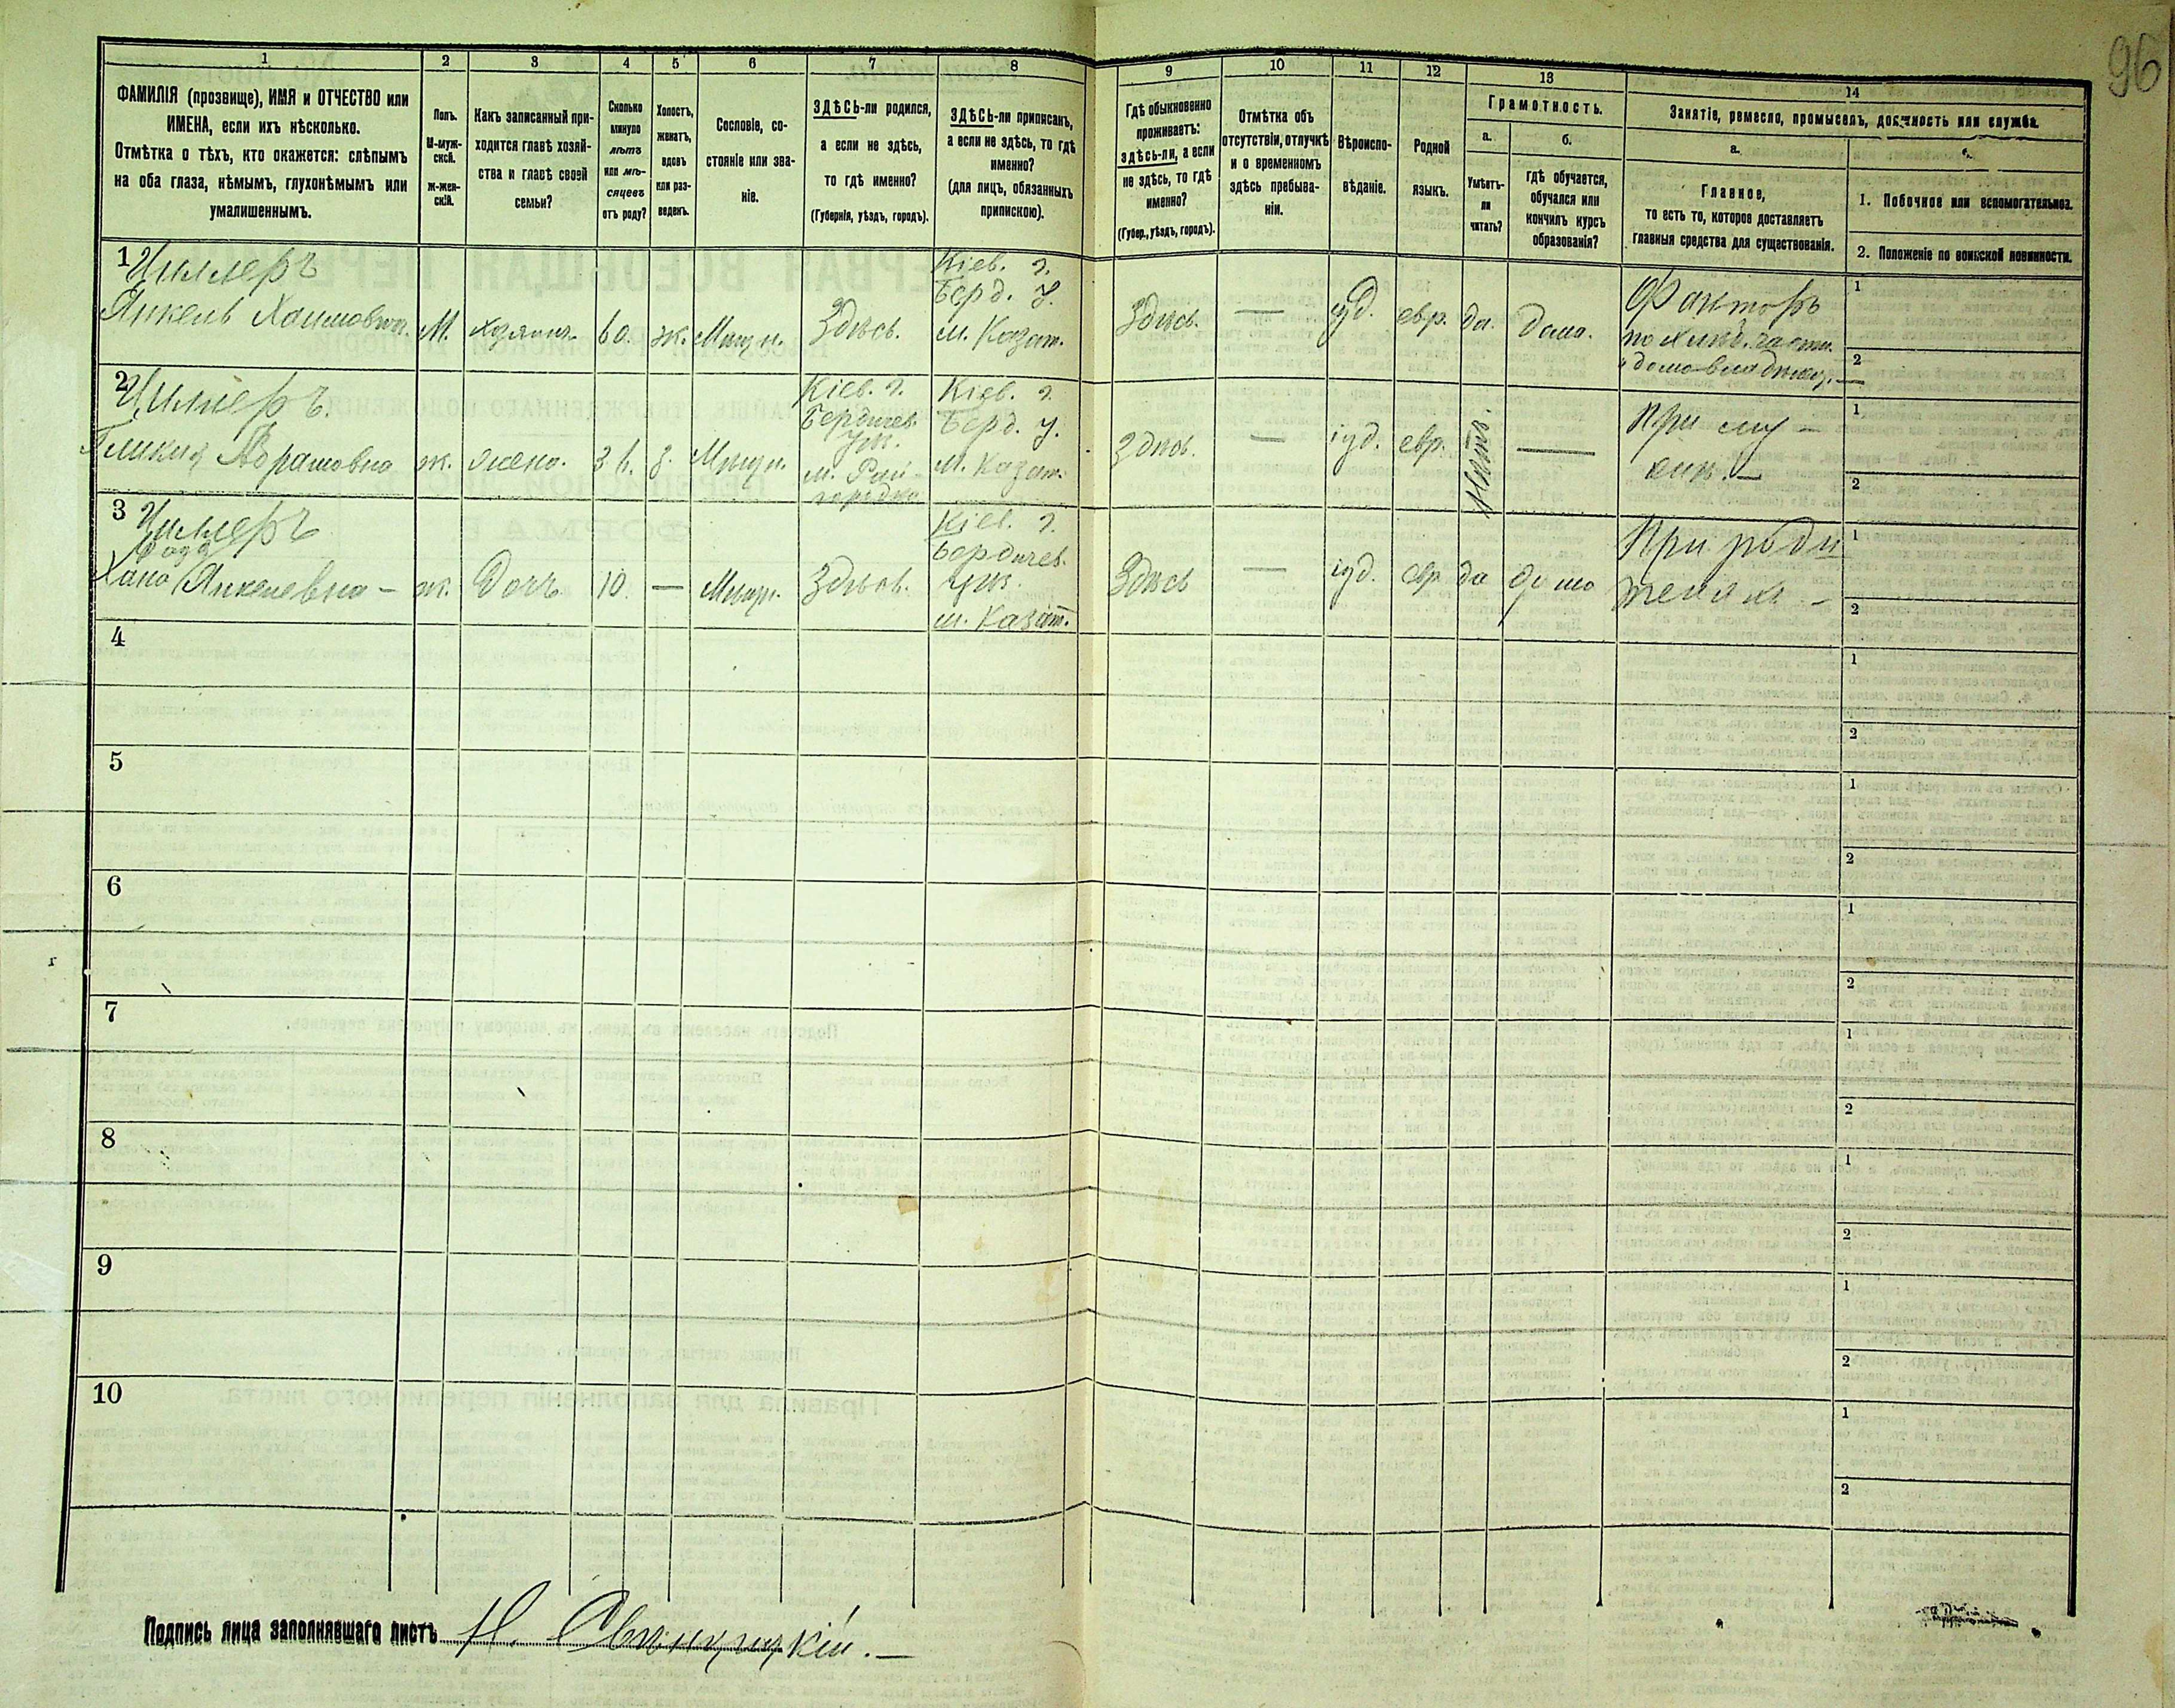 96
1 2 3 4 5 6 7 8 9 10 11 12 13 14
ФАМИЛІЯ (прозвище), ИМЯ и ОТЧЕСТВО или
ИМЕНА, если ихъ нѣсколько.
Отмѣтка о тѣхъ, кто окажется: слѣпымъ
на оба глаза, нѣмымъ, глухонѣмымъ или
умалишеннымъ.
Полъ.
М-муж-
ской.
ж-жен-
скій.
Какъ записанный при-
ходится главѣ хозяй-
ства и главѣ своей
семьи?
Сколько
минуло
лѣтъ
или мѣ-
сяцевъ
отъ роду?
Холостъ,
женатъ,
вдовъ
или раз-
веденъ.
Сословіе, со-
стояніе или зва-
ніе.
ЗДѢСЬ-ли родился,
а если не здѣсь,
то гдѣ именно?
(Губернія, уѣздъ, городъ).
ЗДѢСЬ-ли приписанъ,
а если не здѣсь, то гдѣ
именно?
(для лицъ, обязанныхъ
припискою).
Гдѣ обыкновенно
проживаетъ:
здѣсь-ли, а если
не здѣсь, то гдѣ
именно?
(Губер., уѣздъ, городъ).
Отмѣтка объ
отсутствіи, отлучкѣ
и о временномъ
здѣсь пребыва-
ніи.
Вѣроиспо-
вѣданіе.
Родной
языкъ.
Грамотность.
а.
Умѣетъ-
ли
читать?
б.
гдѣ обучается,
обучался или
кончилъ курсъ
образованія?
Занятіе, ремесло, промыселъ, должность или служба.
а.
Главное,
то есть то, которое доставляетъ
главныя средства для существованія.
1. Побочное или вспомогательное.
2. Положеніе по воинской повинности.
1
Циллеръ
Янкель Хаимовичъ
М.
хозяинъ
60.
ж.
Мѣщ.
Здѣсь.
Кіев. г.
Берд. у.
м. Казат.
Здѣсь.
—
іуд.
евр.
да.
дома.
Факторъ
по хлѣб. части
и домовладѣлец.—
1
2
2
Циллеръ.
Гликля Абрамовна
ж.
жена.
36.
з.
Мѣщ.
Кіев. г.
Бердичев.
уѣз.
м. Рай-
городка
Кіев. г.
Берд. у.
м. Казат.
Здѣсь.
—
іуд.
евр.
Нѣтъ.
—
При му-
жѣ.—
1
2
3
Циллеръ
Хана Янкелевна –
ж.
Дочь
10.
—
Мѣщ.
Здѣсь.
Кіев. г.
Бердичев.
уѣз.
м. Казат.
Здѣсь
—
іуд.
евр
да
дома
При роди
теляхъ –
1
2
4
1
2
5
1
2
6
1
2
7
1
2
8
1
2
9
1
2
10
1
2
Подпись лица заполнявшаго листъ